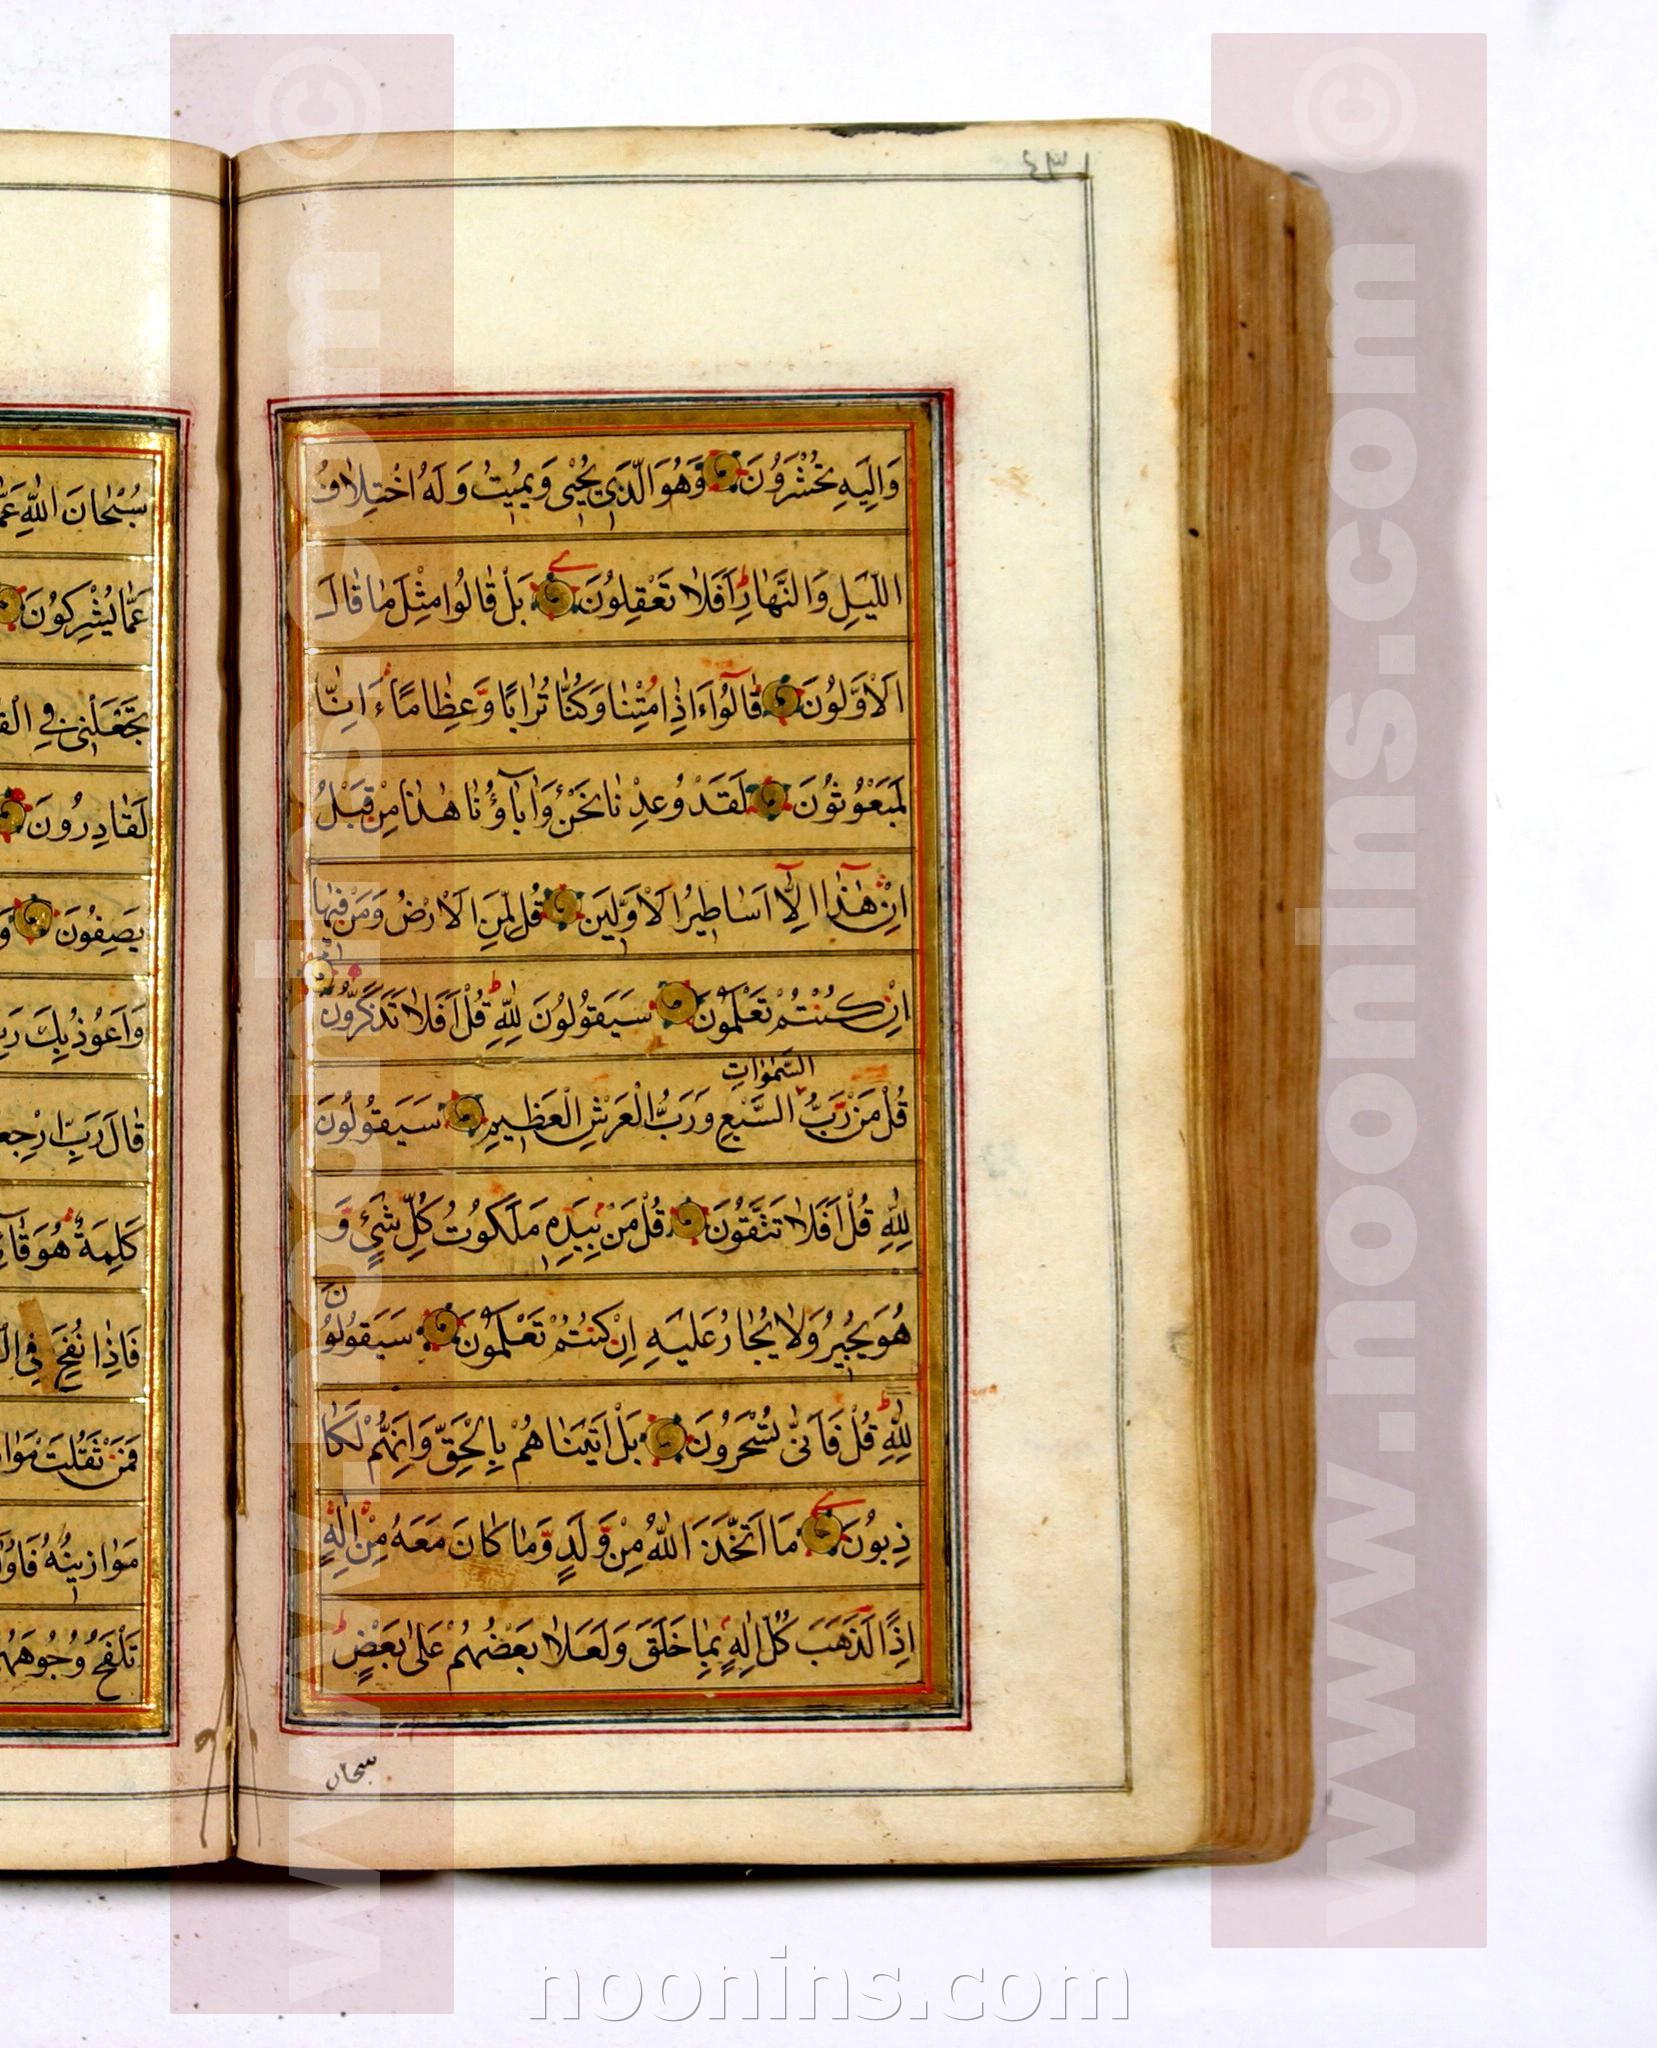 وَاِلَيهِ تُحْشَرُونَ وَهُوَ الَّذى يُحْيى وَيُميتُ وَلَهُ اخْتِلافُ
اللَّيلِ وَالنَّهارِ اَفَلا تَعْقِلُونَ بَلْ قالُوا مِثْلَ ما قالَ
الْاَوَّلُونَ قالُوا ءَاِذا مِتْنا وَكُنّا تُرابًا وَعِظامًا ءَاِنّا
لَمَبْعُوثُونَ لَقَدْ وُعِدْنا نَحْنُ وَاباؤُنا هذا مِنْ قَبْلُ
اِنْ هذا اِلّا اَساطيرُ الْاَوَّلينَ قُلْ لِمَنِ الْاَرْضُ وَمَنْ فيها
اِنْ كُنْتُمْ تَعْلَمُونَ سَيَقُولُونَ لِلّهِ قُلْ اَفَلا تَذَكَّرُونَ
قُلْ مَنْ رَبُّ السَّمواتِ السَّبْعِ وَرَبُّ الْعَرْشِ الْعَظيمِ سَيَقُولُونَ
لِلّهِ قُلْ اَفَلا تَتَّقُونَ قُلْ مَنْ بِيَدِه مَلَكُوتُ كُلِّ شَىْءٍ وَ
هُوَ يُجيرُ وَلا يُجارُ عَلَيهِ اِنْ كُنْتُمْ تَعْلَمُونَ سَيَقُولُونَ
لِلّهِ قُلْ فَاَنّى تُسْحَرُونَ بَلْ اَتَيناهُمْ بِالْحَقِّ وَاِنَّهُمْ لَكا
ذِبُونَ مَا اتَّخَذَ اللّهُ مِنْ وَلَدٍ وَما كانَ مَعَهُ مِنْ اِلهٍ
اِذًا لَذَهَبَ كُلُّ اِلهٍ بِما خَلَقَ وَلَعَلا بَعْضُهُمْ عَلى بَعْضٍ
سبحان
سُبْحانَ اللّهِ عَمّا
عَمّا يُشْرِكُونَ
تَجْعَلْنى فِى
لَقادِرُونَ
يَصِفُونَ
وَاَعُوذُ بِكَ
قالَ رَبِّ
كَلِمَةٌ هُوَ
فَاِذا نُفِخَ فِى
فَمَنْ ثَقُلَتْ
مَوازينُهُ
تَلْفَحُ وُجُوهَهُمُ
www.noonins.com ©
www.noonins.com ©
noonins.com